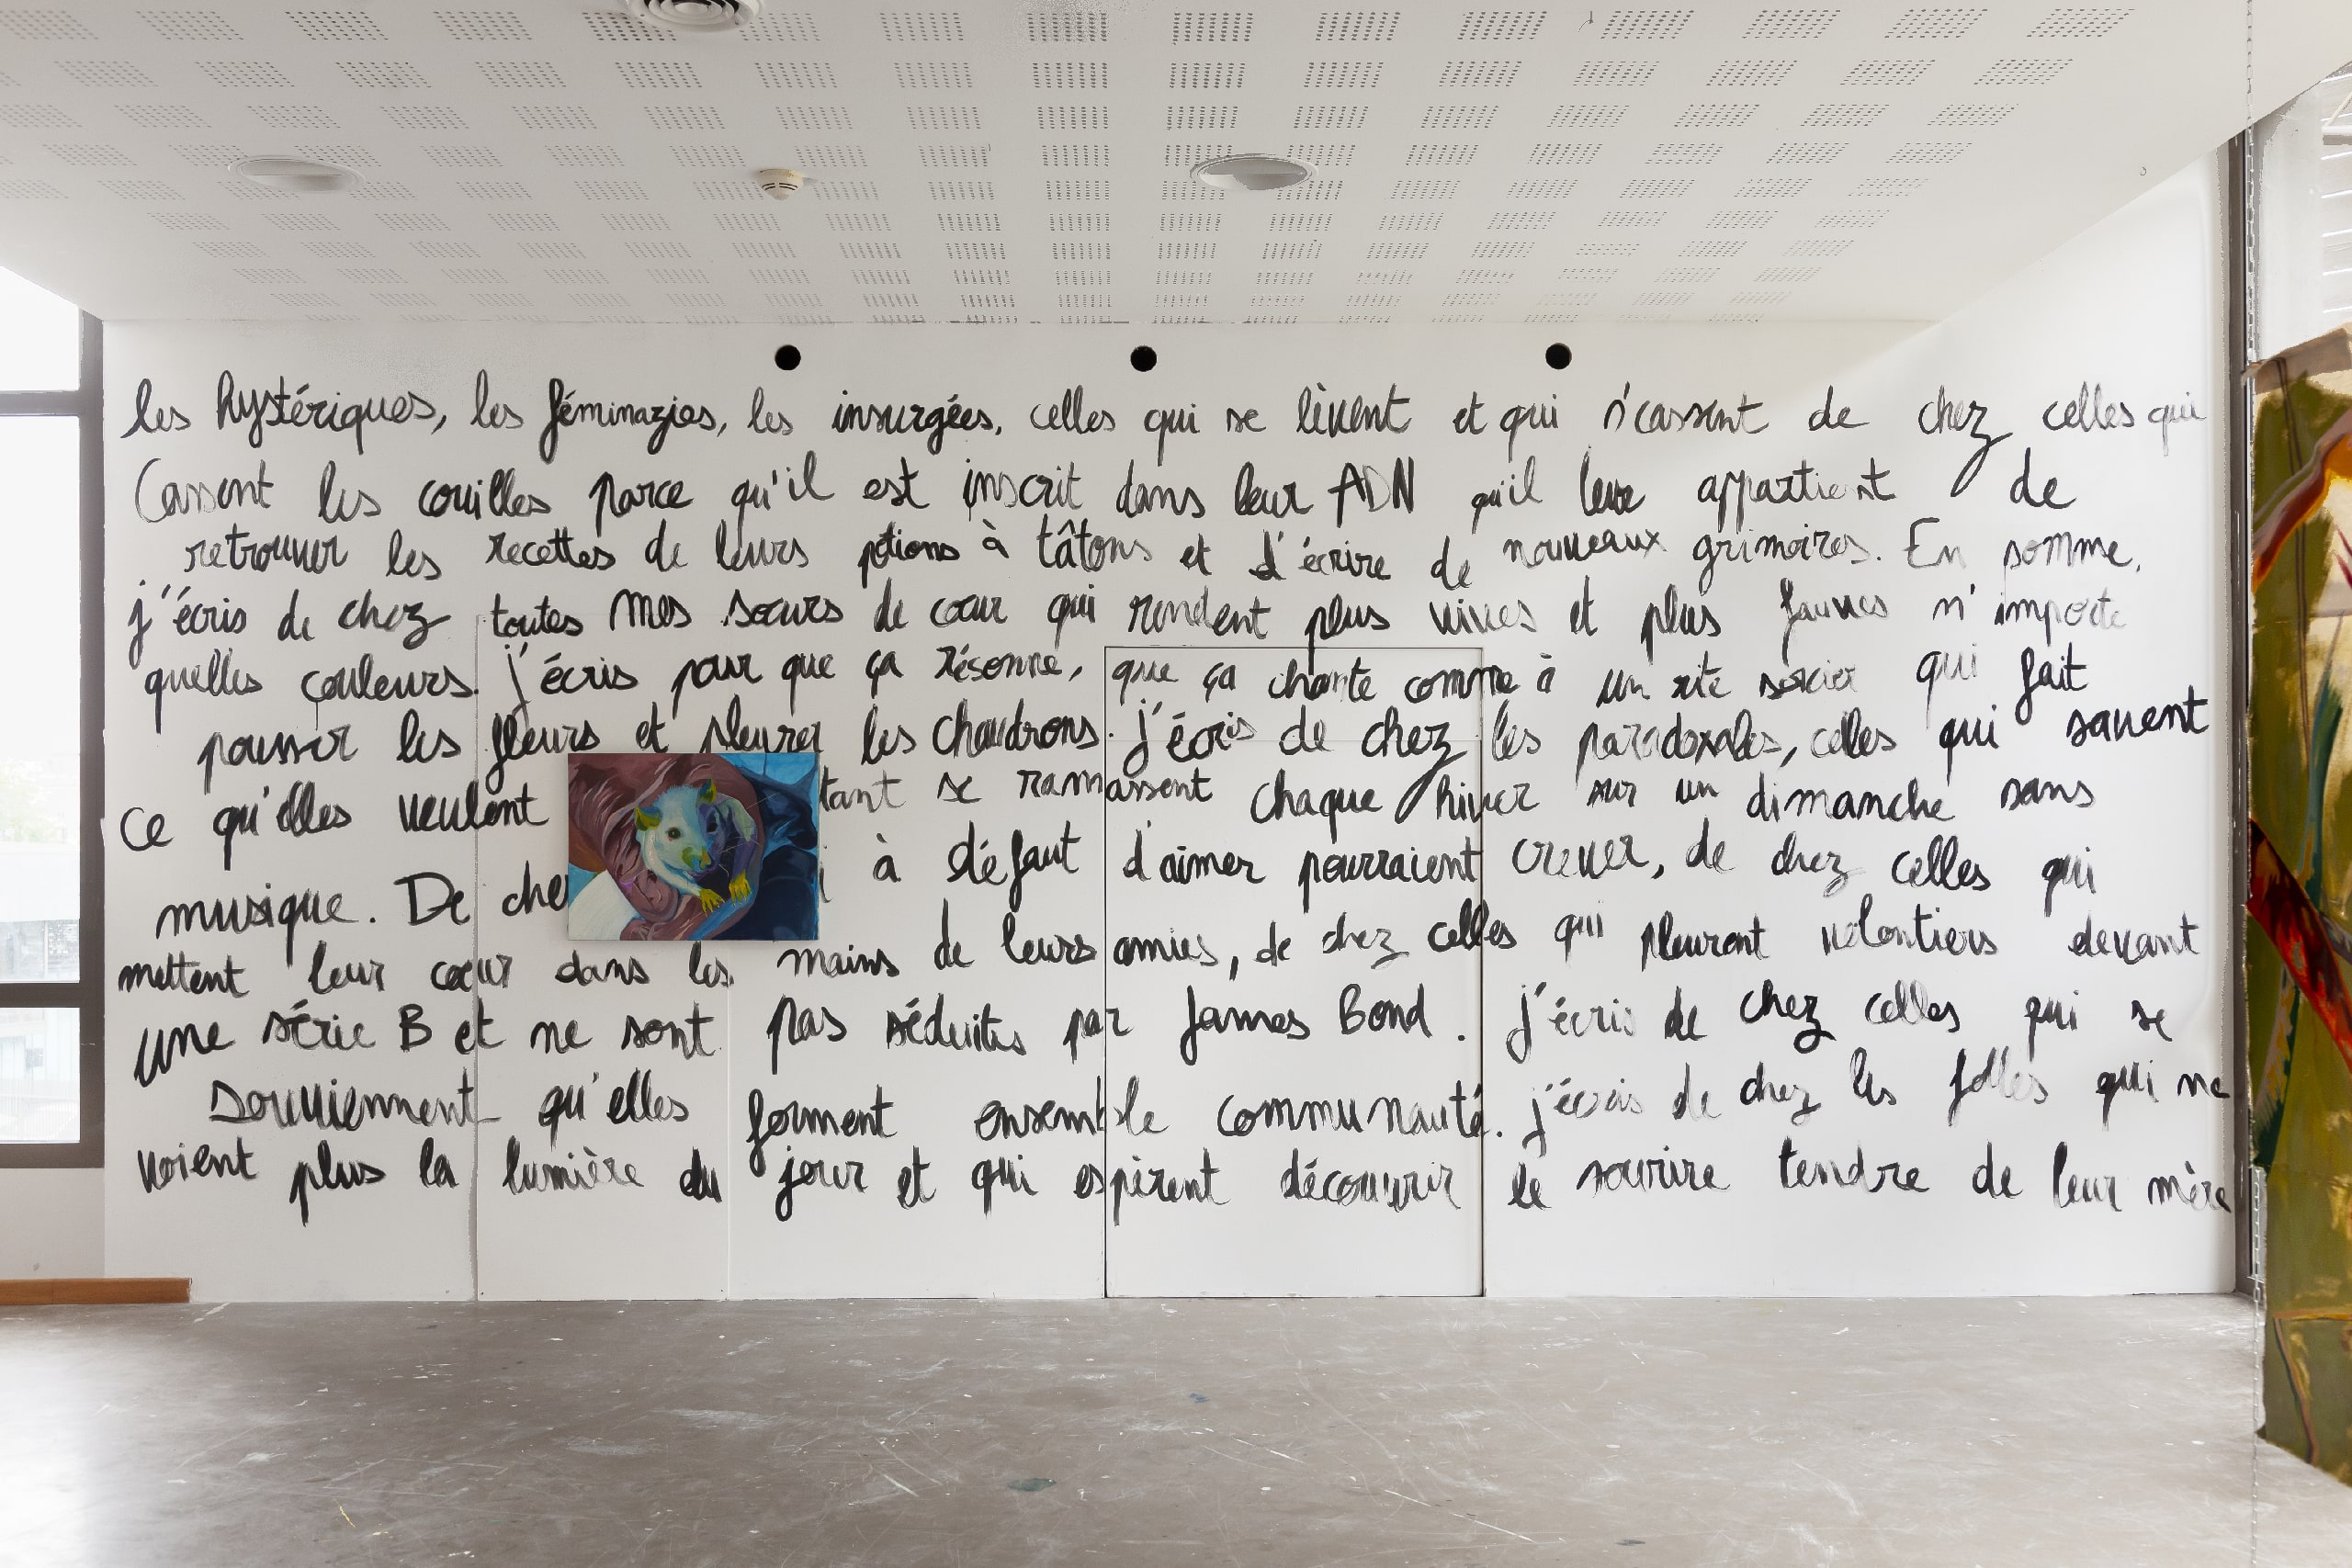 les hystériques, les féminazies, les insurgées, celles qui se lèvent et qui s'cassent de chez celles qui
Cassent les couilles parce qu'il est inscrit dans leur ADN qu'il leur appartient de
retrouver les recettes de leurs potions à tâtons et d'écrire de nouveaux grimoires. En somme,
j'écris de chez toutes mes sœurs de cœur qui rendent plus vives et plus fauves n'importe
quelles couleurs. j'écris pour que ça résonne, que ça chante comme à un rite sorcier qui fait
pousser les fleurs et pleurer les chaudrons. j'écris de chez les paradoxales, celles qui savent
ce qu'elles veulent tant se ramassent chaque hiver sur un dimanche sans
musique. De che i à défaut d'aimer pourraient crever, de chez celles qui
mettent leur cœur dans les mains de leurs amies, de chez celles qui pleurent volontiers devant
une série B et ne sont pas séduites par James Bond. j'écris de chez celles qui se
souviennent qu'elles forment ensemble communauté. j'écris de chez les folles qui ne
voient plus la lumière du jour et qui espèrent découvrir le sourire tendre de leur mère